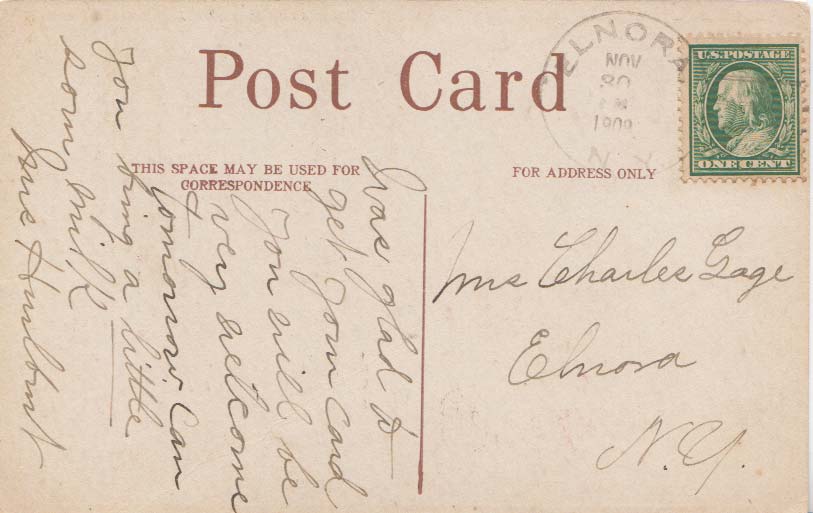 Post Card
ELNORA
NOV
30
1909
N.Y.
U.S. POSTAGE
ONE CENT
THIS SPACE MAY BE USED FOR
CORRESPONDENCE
FOR ADDRESS ONLY
Was glad to
get your Card
You will be
very welcome
tomorrow Can
you bring a little
sour milk
Mrs Charles Gage
Elnora
N.Y.